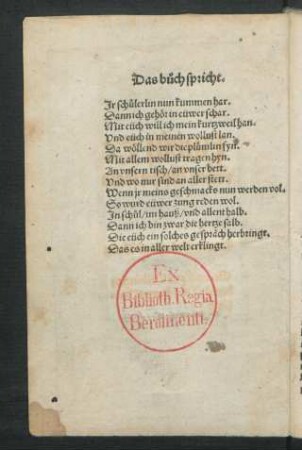 Das bůch spricht.
Ir schülerlin nun kummen har.
Dann ich gehöꝛ in eüwer schar.
Mit eüch will ich mein kurtzweil han.
Vnd eüch in meinen wollust lan.
Da wöllend wir die plümlin syn.
Mit allem wollust tragen hyn.
An vnsern tisch/ an vnser bett.
Vnd wo mir sind an aller stett.
Wenn jr meins geschmacks nun werden vol.
So würd eüwer zung reden wol.
In schůl/ im hauß/ vnd allent halb.
Dann ich bin zwar die hertze salb.
Die eüch ein solches gespräch herbringt.
Das es in aller welt erklingt.
Ex
Biblioth. Regia
Berolinenti.